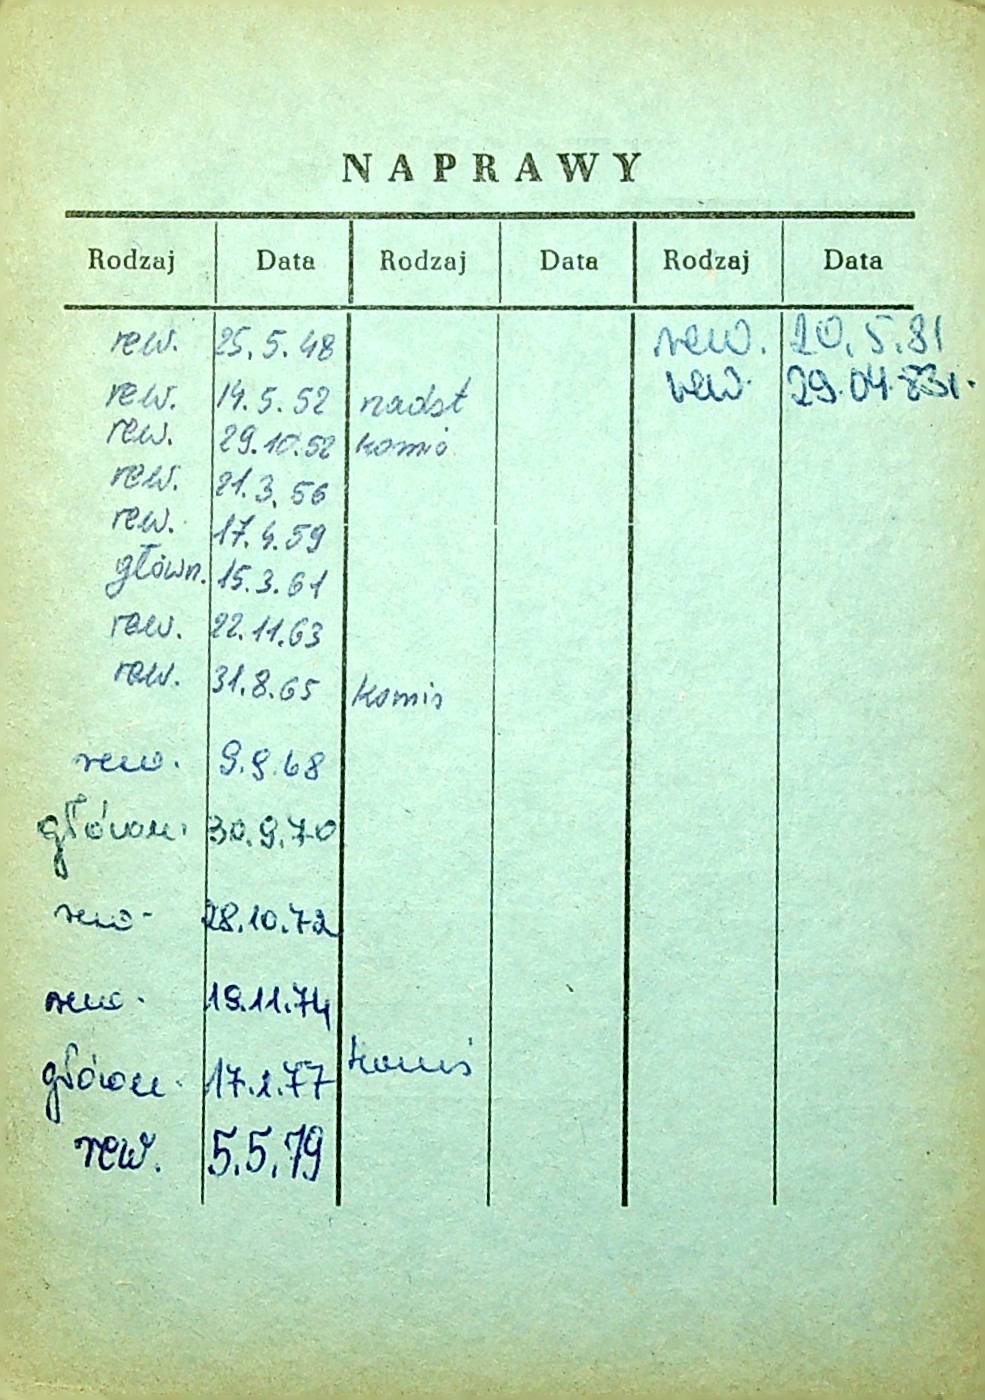 NAPRAWY
Rodzaj Data Rodzaj Data Rodzaj Data
rew. 25.5.48 rew. 20.5.81
rew. 14.5.52 nadst rew. 29.04.83r.
rew. 29.10.52 komis
rew. 21.3.56
rew. 17.4.59
główn. 15.3.61
rew. 22.11.63
rew. 31.8.65 komis
rew. 9.9.68
główn. 30.9.70
rew. 28.10.72
rew. 19.11.74
główn. 17.2.77 komis
rew. 5.5.79